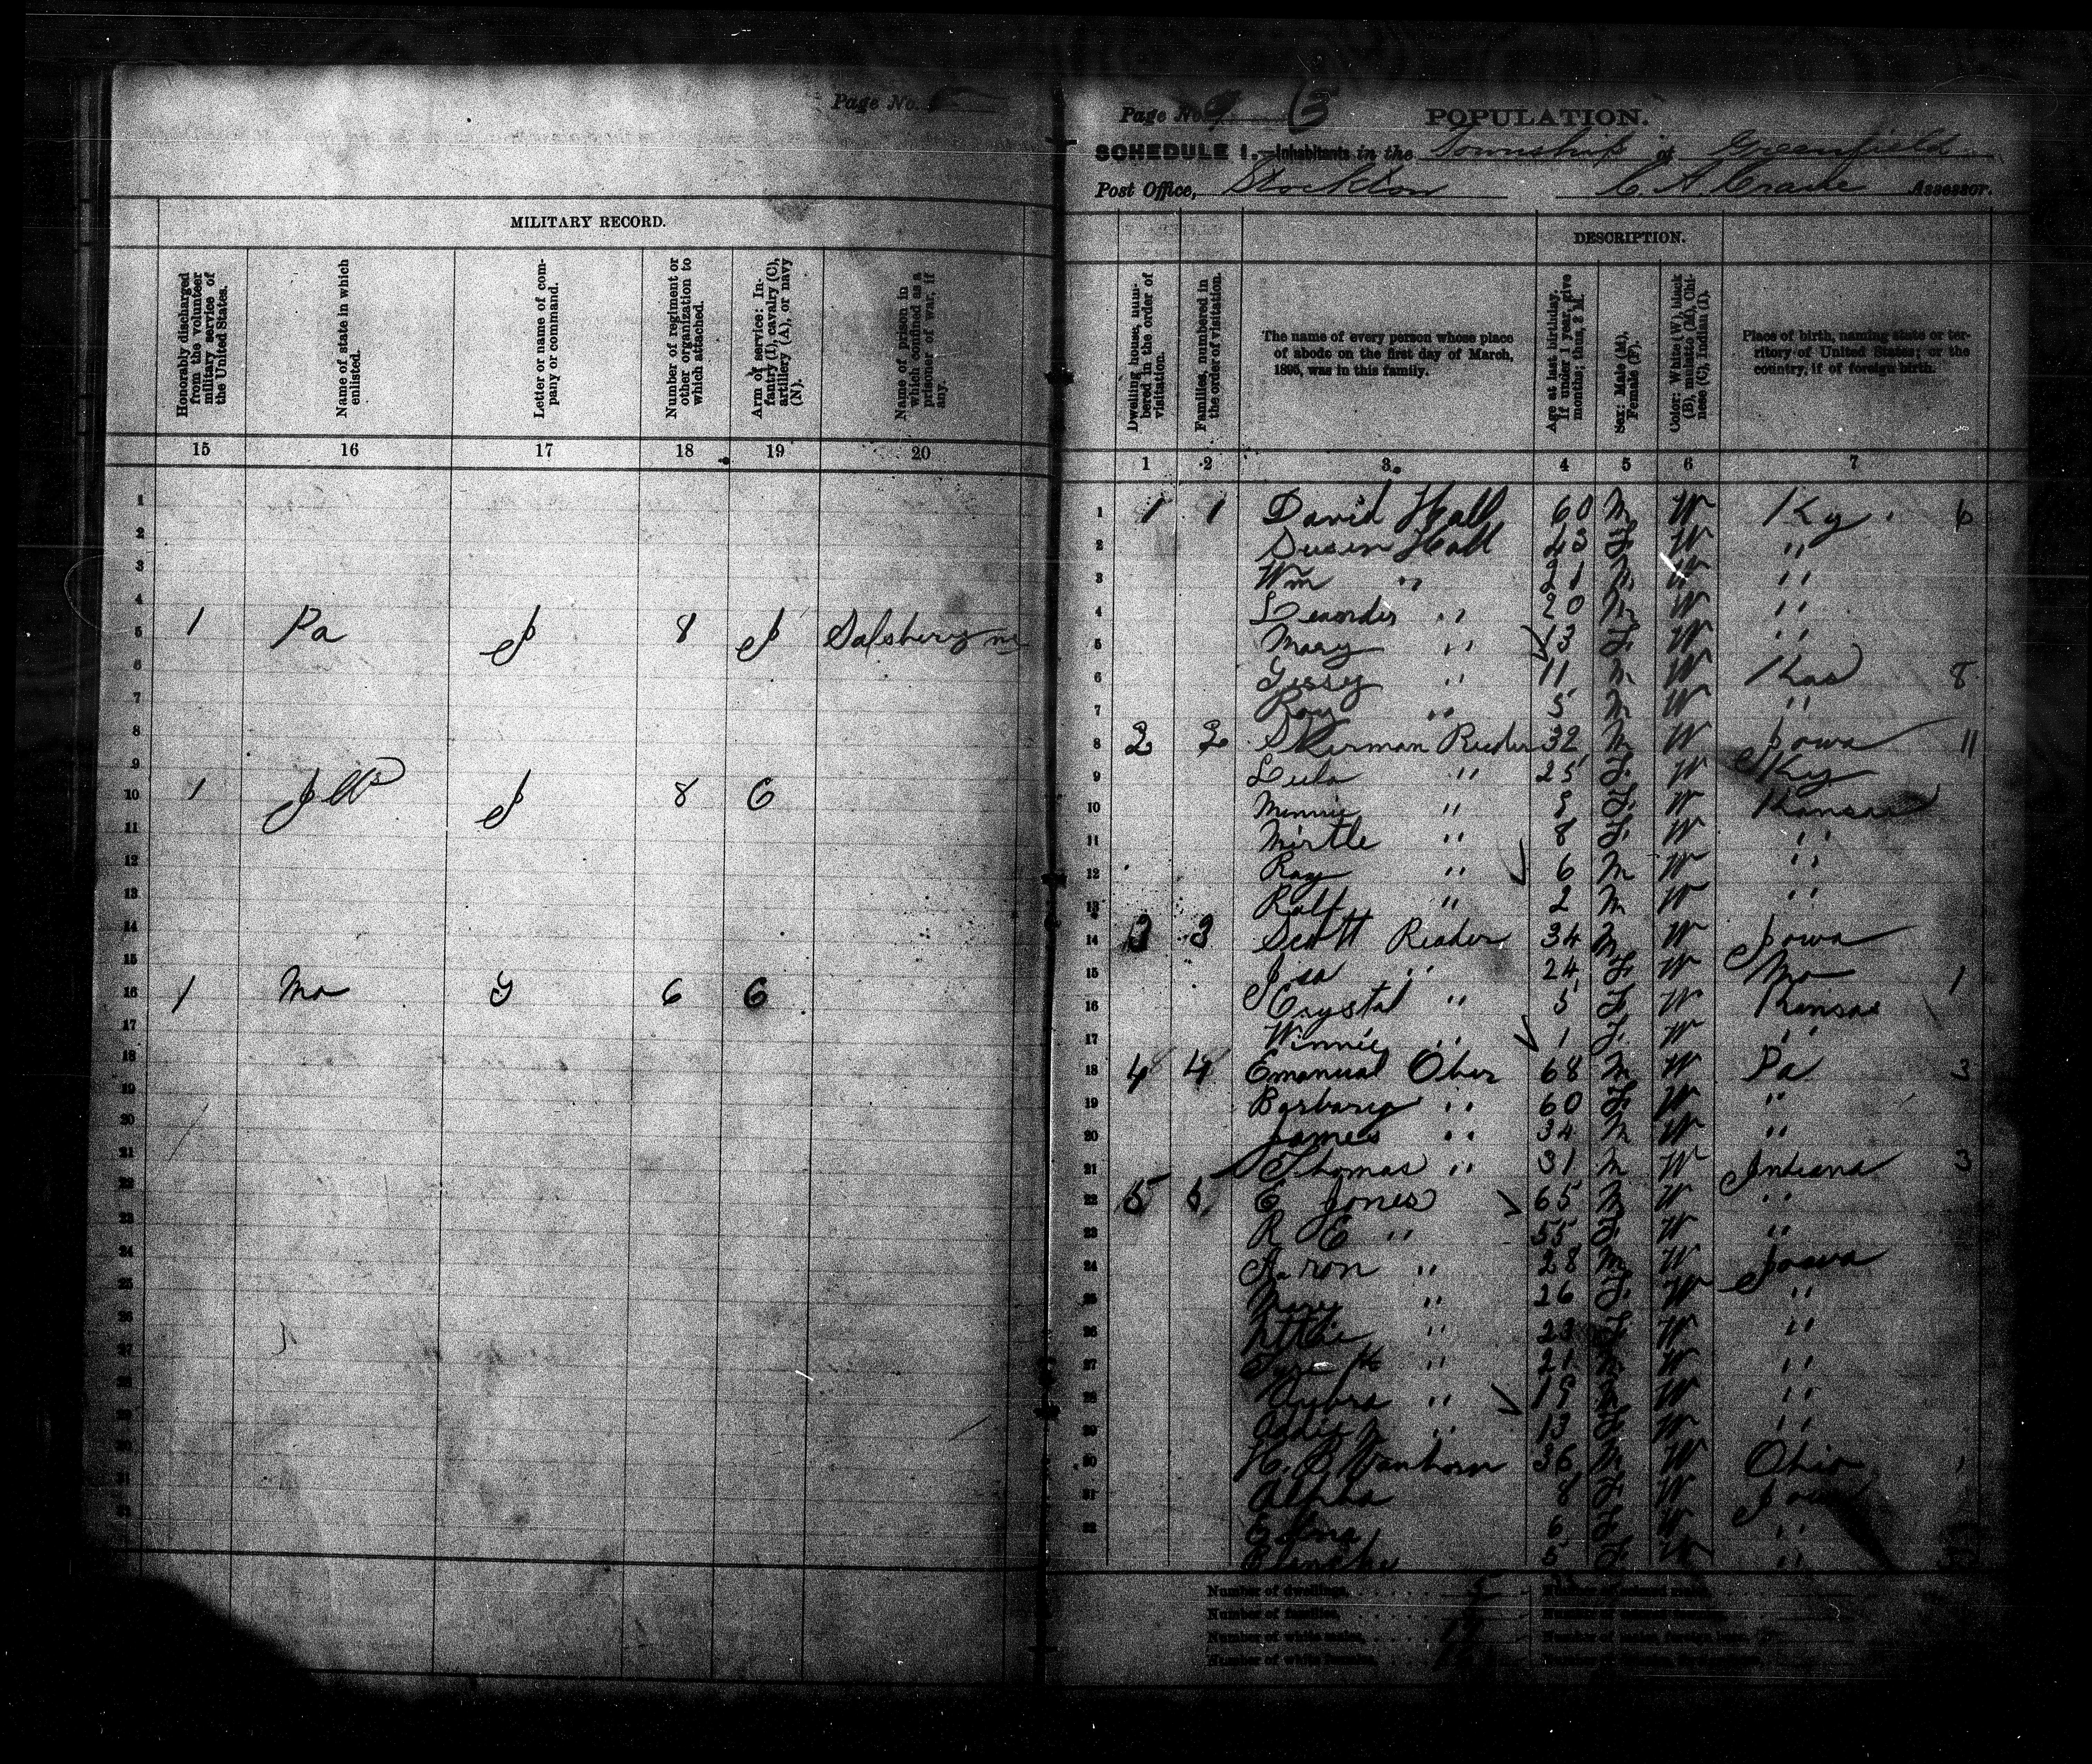 Page No.
MILITARY RECORD.
Honorably discharged from the volunteer military service of the United States.
Name of state in which enlisted.
Letter or name of company or command.
Number of regiment or other organization to which attached.
Arm of service: Infantry (I), cavalry (C), artillery (A), or navy (N).
Name of prison in which confined as a prisoner of war, if any.
15 16 17 18 19 20
1 Pa I 8 I Salsbery
1 Ills I 8 C
1 Mo G 6 C
Page No. 5
POPULATION.
SCHEDULE 1.—Inhabitants in the Township of Greenfield
Post Office, Stockton C. A. Crane Assessor.
DESCRIPTION.
Dwelling house, numbered in the order of visitation.
Families, numbered in the order of visitation.
The name of every person whose place of abode on the first day of March, 1895, was in this family.
Age at last birthday. If under 1 year, give months; thus, 3 M.
Sex: Male (M), Female (F).
Color: White (W), black (B), mulatto (M), Chinese (C), Indian (I).
Place of birth, naming state or territory of United States; or the country, if of foreign birth.
1 2 3 4 5 6 7
1 1 1 David Hall 60 M W Ky 6
2 Susan Hall 43 F W "
3 Wm " 21 M W "
4 " 20 M W "
5 Mary " 13 F W "
6 " 11 M W Kas 8
7 Roy " 5 M W "
8 2 2 Sherman Reeder 32 M W Iowa 11
9 Lula " 25 F W Ky
10 Minnie " 9 F W Kansas
11 Mirtle " 8 F W "
12 Ray " 6 M W "
13 Ralf " 2 M W "
14 3 3 Scott Reader 34 M W Iowa
15 Isa " 24 F W Mo 1
16 Crystal " 5 F W Kansas
17 Winnie " 1 F W "
18 4 4 Emanual Ober 68 M W Pa 3
19 Barbary " 60 F W "
20 James " 34 M W "
21 Thomas " 31 M W Indiana 3
22 5 5 E Jones 65 M W "
23 R E " 55 F W "
24 Aaron " 28 M W Iowa
25 Mary " 26 F W "
26 " 23 F W "
27 " 21 M W "
28 " 19 W "
29 Addie " 13 F W "
30 H. B Vanhorn 36 M W Ohio 1
31 Alpha 8 F W Iowa
32 Edna 6 F W "
Blanche 5 F W "
Number of dwellings, 5
Number of families,
Number of white males,
Number of white females,